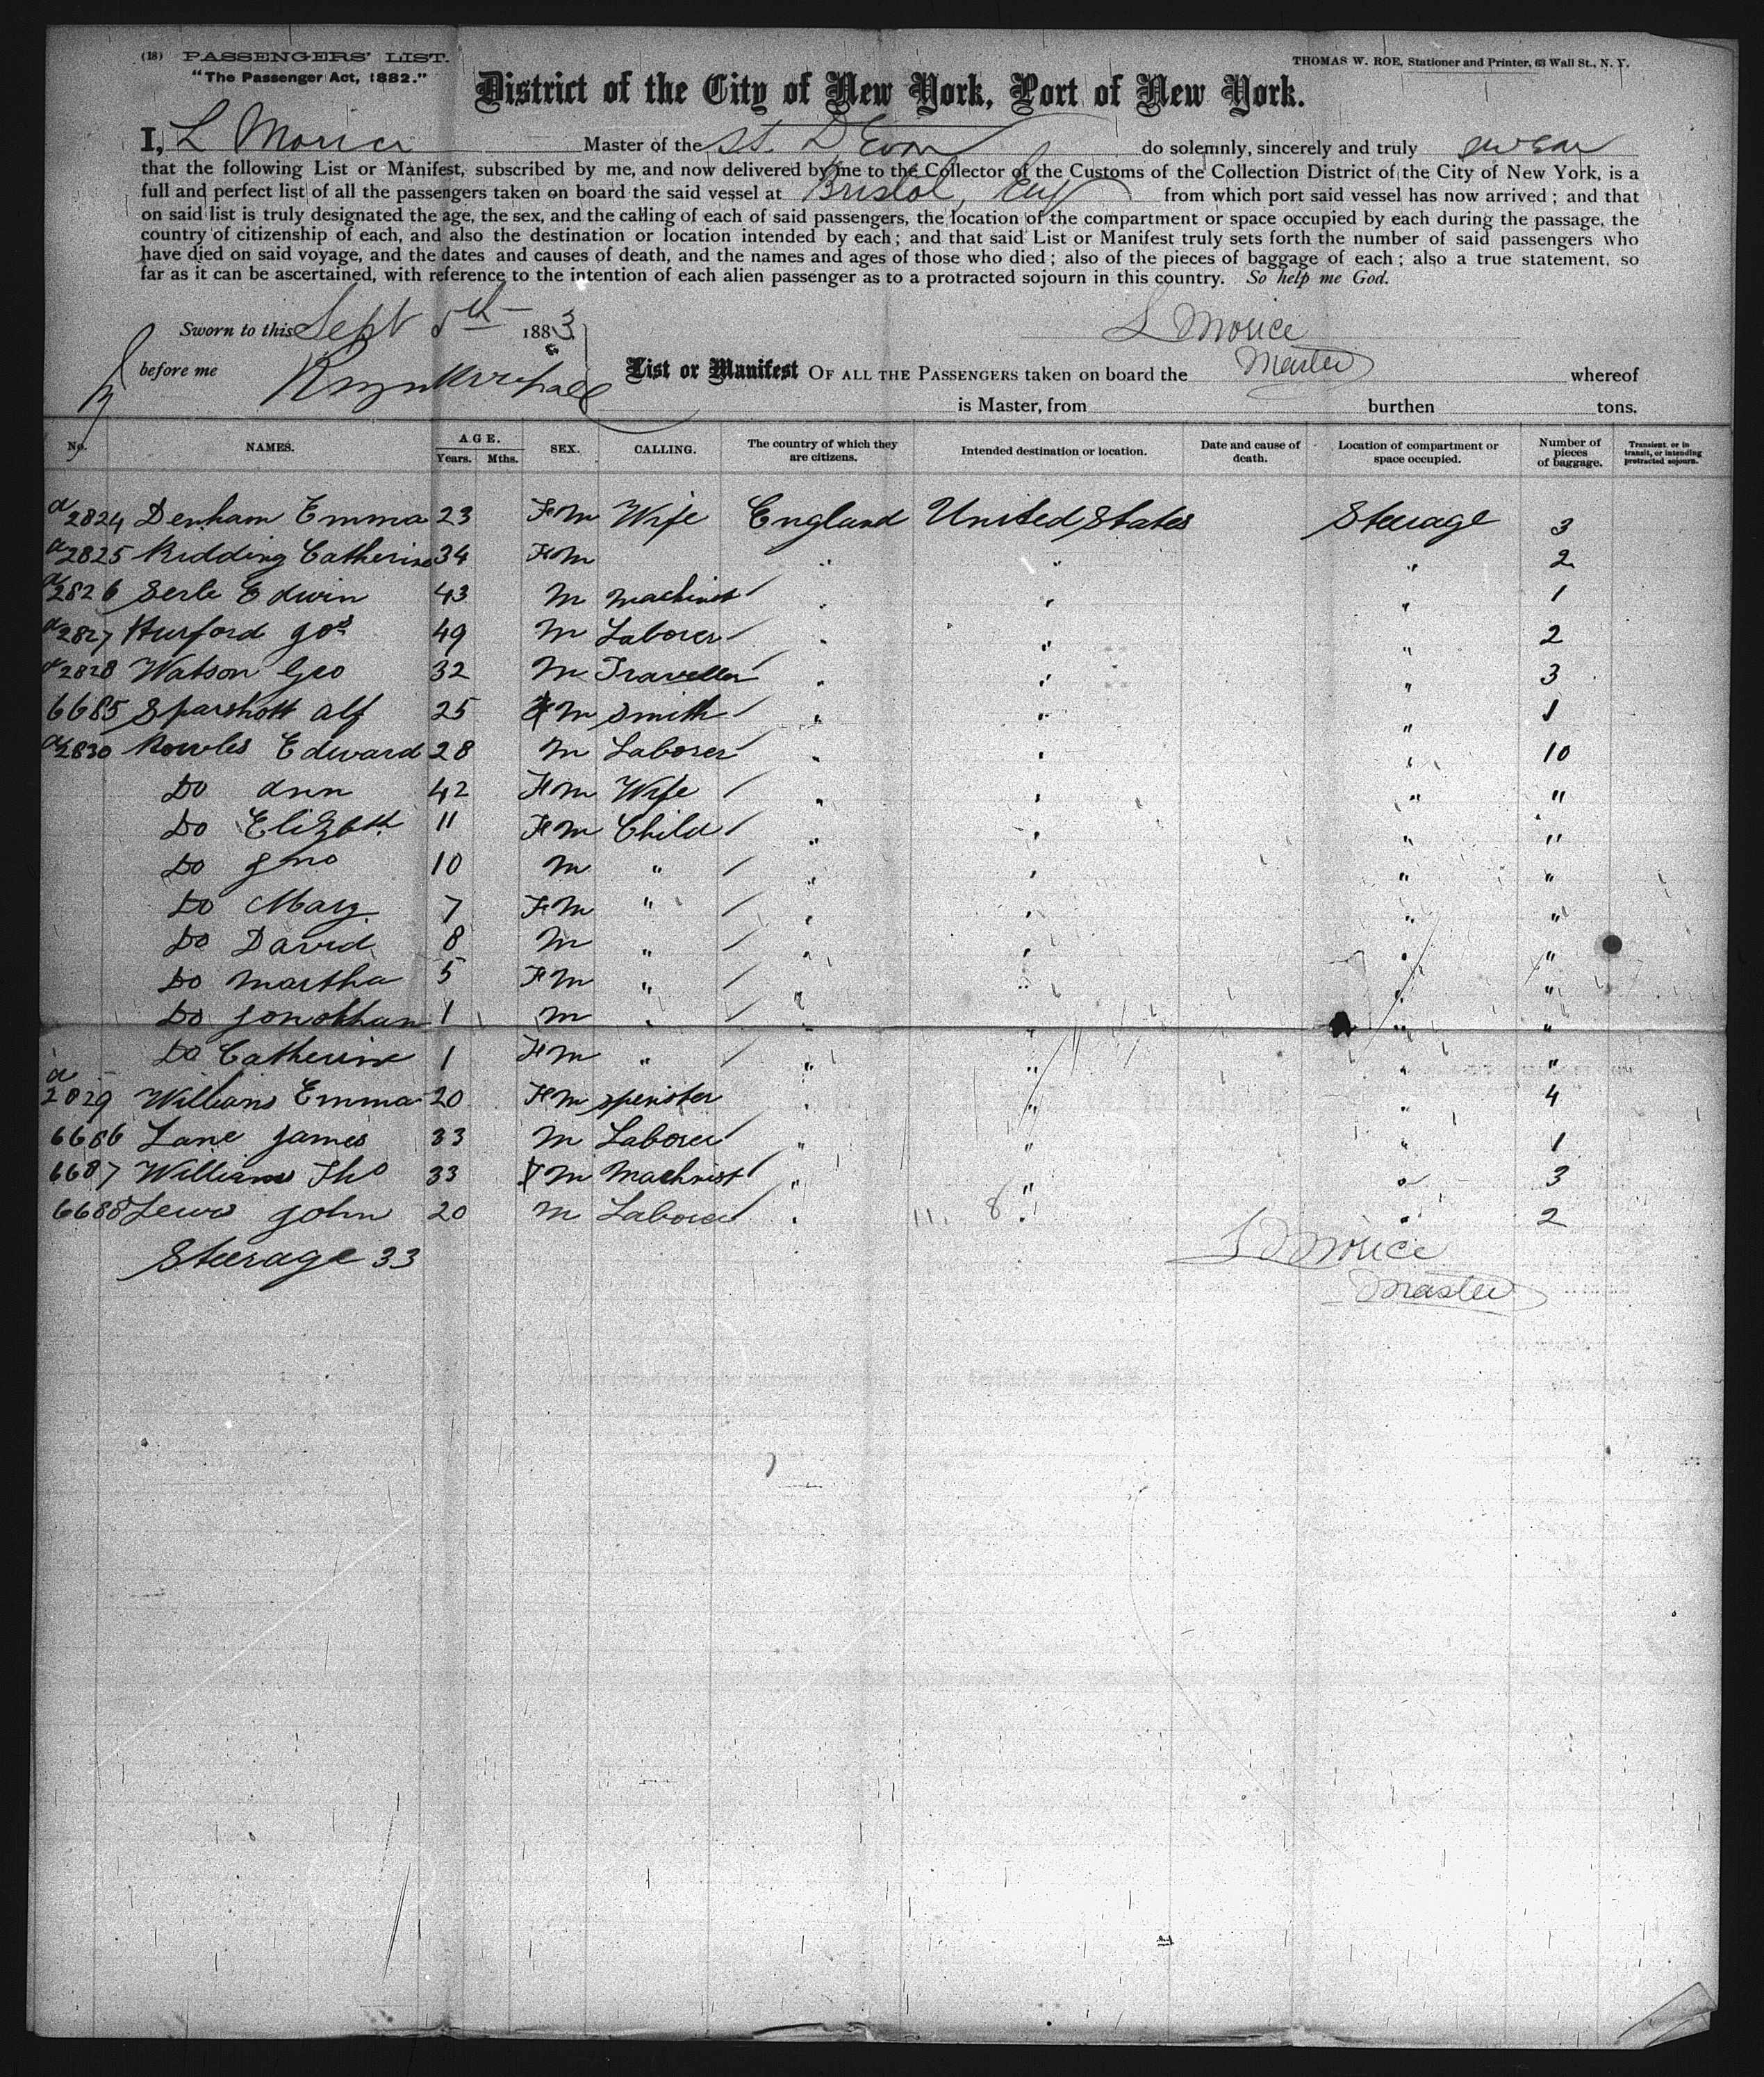 (18) PASSENGERS' LIST.
"The Passenger Act, 1882."
THOMAS W. ROE, Stationer and Printer, 63 Wall St., N. Y.
District of the City of New York, Port of New York.
I, L Morice Master of the SS. Devon do solemnly, sincerely and truly swear
that the following List or Manifest, subscribed by me, and now delivered by me to the Collector of the Customs of the Collection District of the City of New York, is a
full and perfect list of all the passengers taken on board the said vessel at Bristol, Eng from which port said vessel has now arrived; and that
on said list is truly designated the age, the sex, and the calling of each of said passengers, the location of the compartment or space occupied by each during the passage, the
country of citizenship of each, and also the destination or location intended by each; and that said List or Manifest truly sets forth the number of said passengers who
have died on said voyage, and the dates and causes of death, and the names and ages of those who died; also of the pieces of baggage of each; also a true statement, so
far as it can be ascertained, with reference to the intention of each alien passenger as to a protracted sojourn in this country. So help me God.
Sworn to this Sept 5th 1883
L Morice
before me
List or Manifest OF ALL THE PASSENGERS taken on board the Master whereof
is Master, from burthen tons.
No. NAMES. AGE. Years. Mths. SEX. CALLING. The country of which they are citizens. Intended destination or location. Date and cause of death. Location of compartment or space occupied. Number of pieces of baggage. Transient, or in transit, or intending protracted sojourn.
a 2824 Denham Emma 23 Fm Wife England United States Steerage 3
a 2825 Ridding Catherine 34 Fm " " " 2
a 2826 Serle Edwin 43 M Machinist / " " " 1
a 2827 Hurford Jos 49 M Laborer / " " " 2
a 2828 Watson Geo 32 M Traveller / " " " 3
6685 Sparshott Alf 25 M Smith / " " " 1
a 2830 Rowles Edward 28 M Laborer / " " " 10
Do Ann 42 Fm Wife / " " " "
Do Elizbth 11 Fm Child / " " " "
Do Jno 10 M " / " " " "
Do Mary 7 Fm " / " " " "
Do David 8 M " / " " " "
Do Martha 5 Fm " / " " " "
Do Jonothan 1 M " / " " " "
Do Catherine 1 Fm " / " " " "
a 2829 Williams Emma 20 Fm Spinster " " " 4
6686 Lane James 33 M Laborer / " " " 1
6687 Williams Tho 33 M Machinist / " " " 3
6688 Lewis John 20 M Laborer / " 11. 8 " " 2
Steerage 33
L Morice
Master